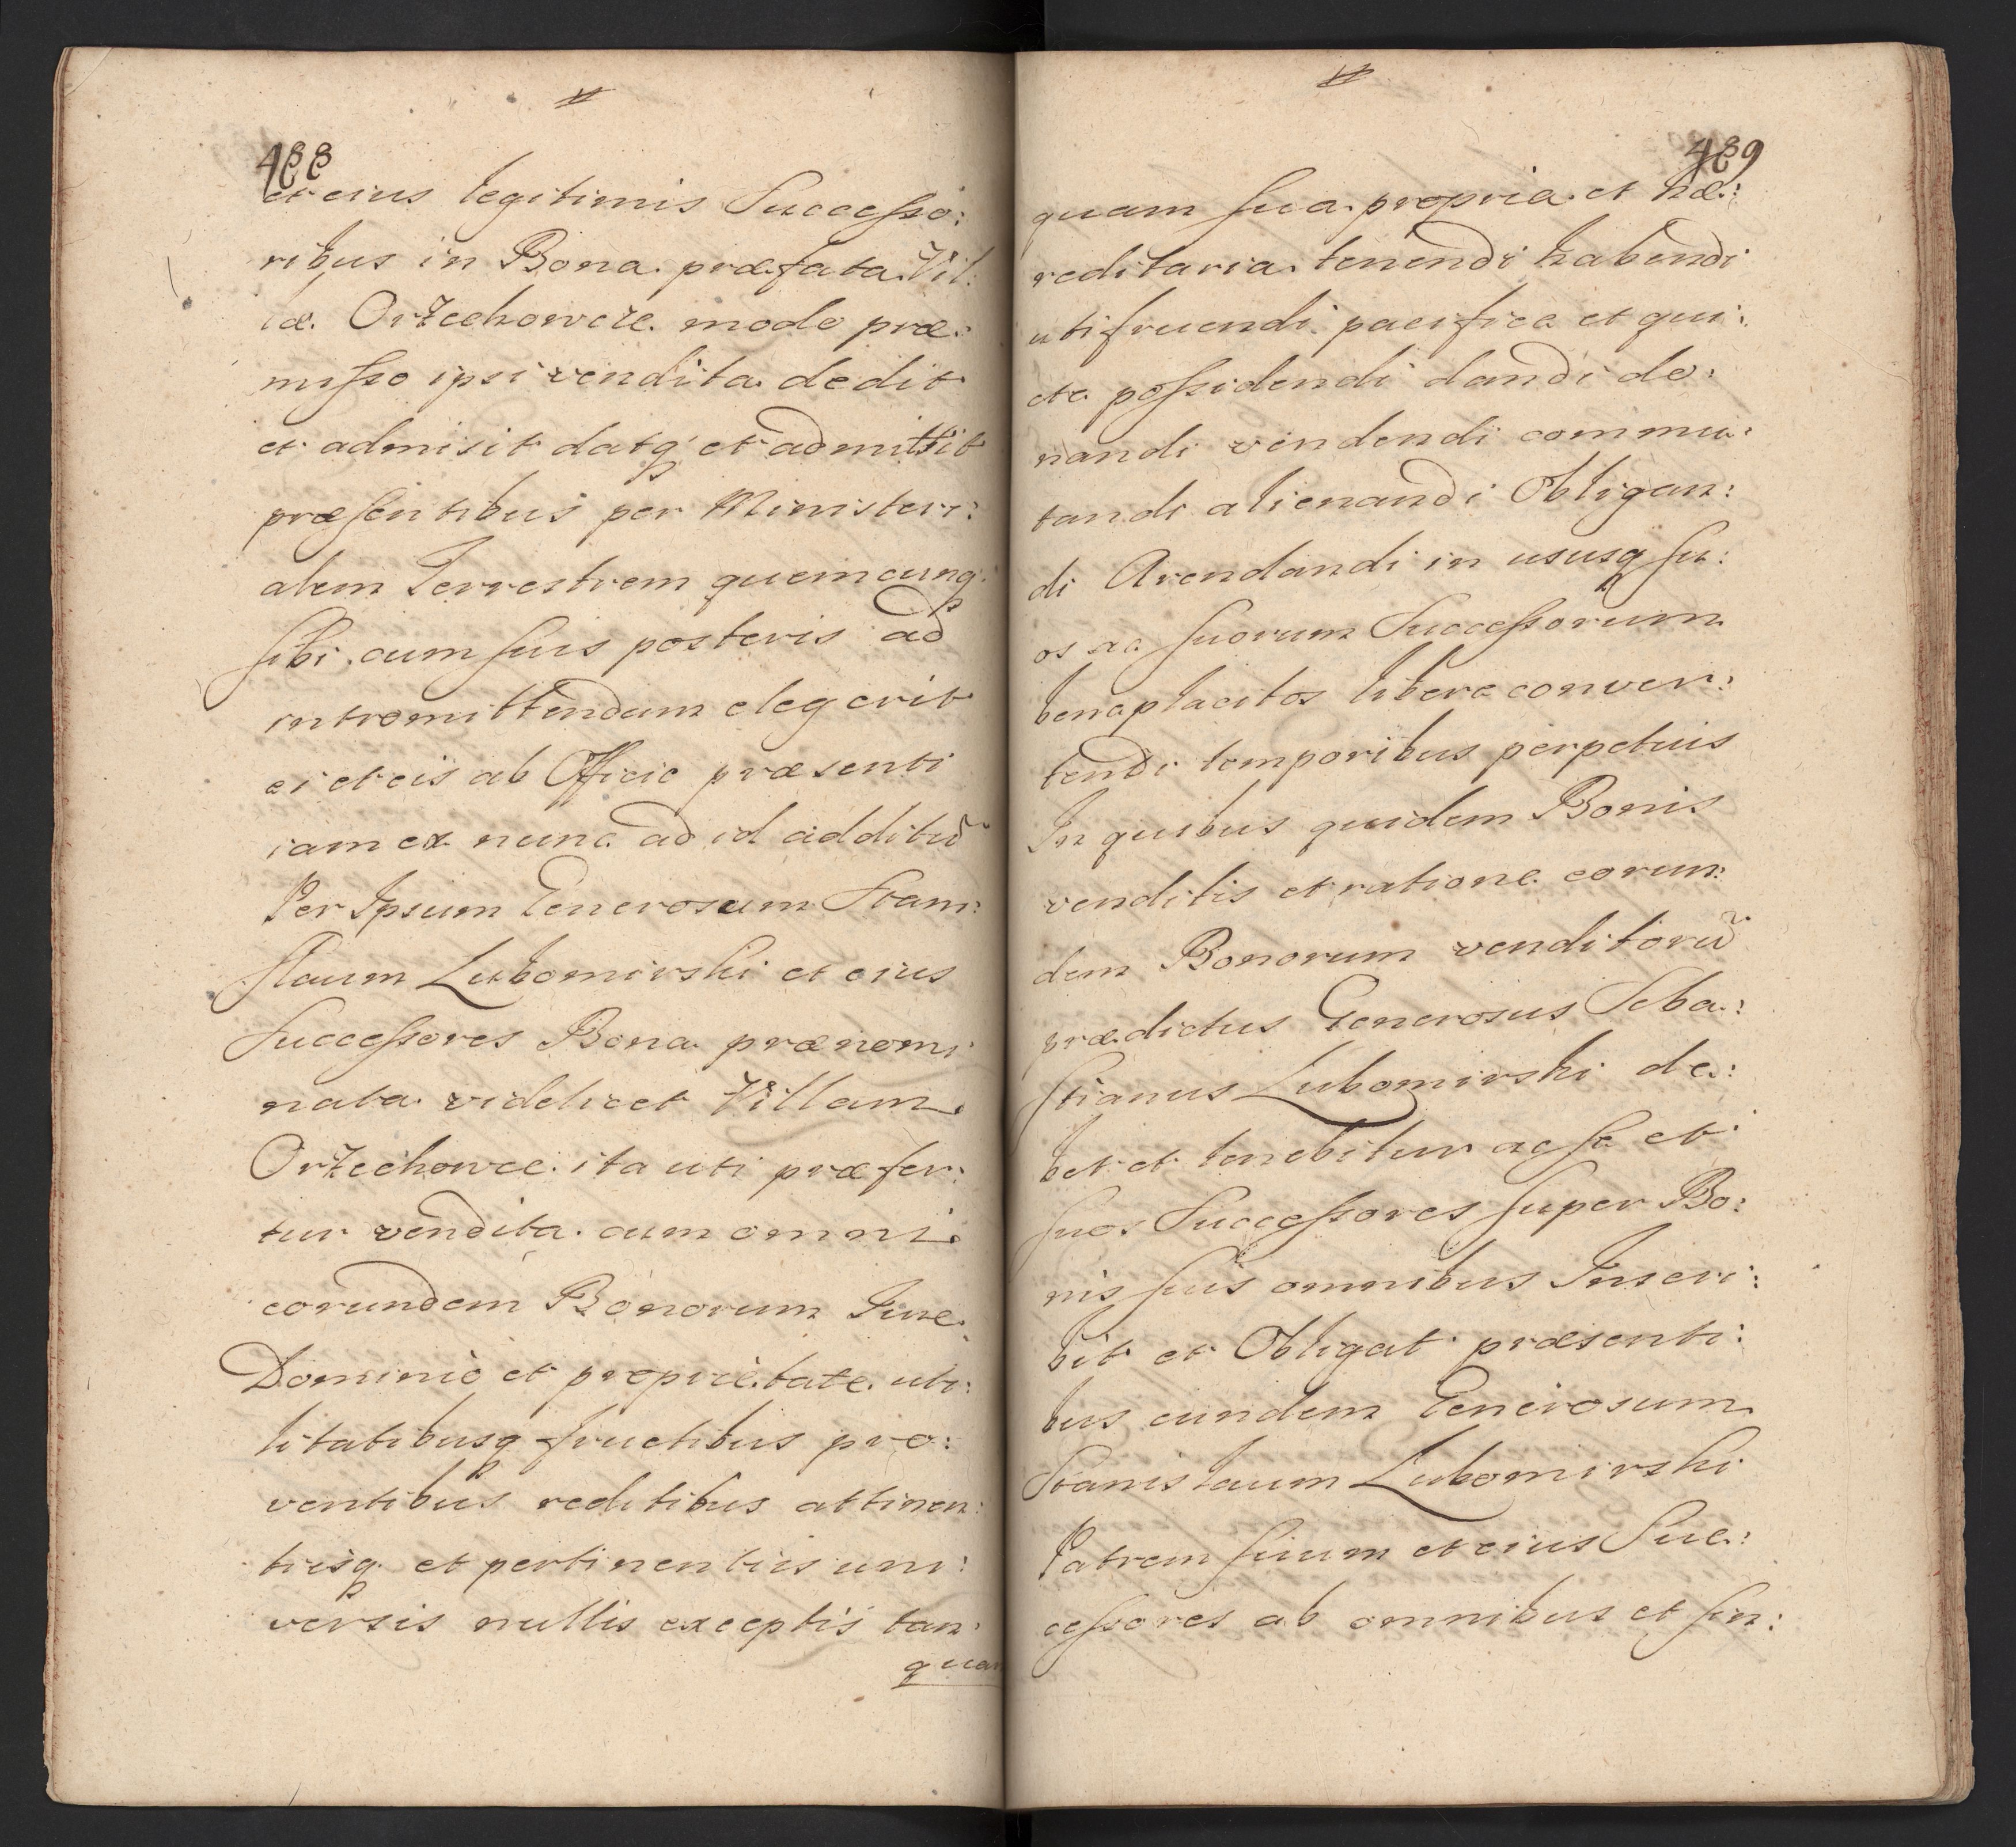 488
et eius legitimis Successo:
ribus in Bona præfata Vil:
læ Orzechowcze modo præ:
misso ipsi vendita dedit
et admisit datq et admittit
præsentibus per Ministeri:
alem Terrestrem quemcunq
sibi cum suis posteris ad
intromittendum elegerit
ei et eis ab Officio præsenti
iam ex nunc ad id additũ
Per Ipsum Generosum Stani:
slaum Lubomirski et eius
Successores Bona prænomi
nata videlicet Villam
Orzechowce ita uti præfer:
tur vendita cum omni
eorundem Bonorum Jure
Dominio et proprietate uti:
litatibusq fructibus pro:
ventibus reditibus attinen:
tiisq et pertinentiis uni:
versis nullis exceptis tan:
quam
489
quam sua propria et hæ:
reditaria tenendi habendi
utifruendi pacifice et qui:
ete possidendi dandi do:
nandi vendendi commu:
tandi alienandi Obligan:
di Arendandi in ususq su:
os ac suorum Successorum
beneplacitos libere conver:
tendi temporibus perpetuis
In quibus quidem Bonis
venditis et ratione eorun:
dem Bonorum venditorũ
prædictus Generosus Seba:
stianus Lubomirski de:
bet et tenebitur ac se et
suos Successores super Bo:
nis suis omnibus Inscri:
bit et Obligat præsenti:
bus eundem Generosum
Stanislaum Lubomirski
Patrem suum et eius Suc:
cessores ab omnibus et sin: